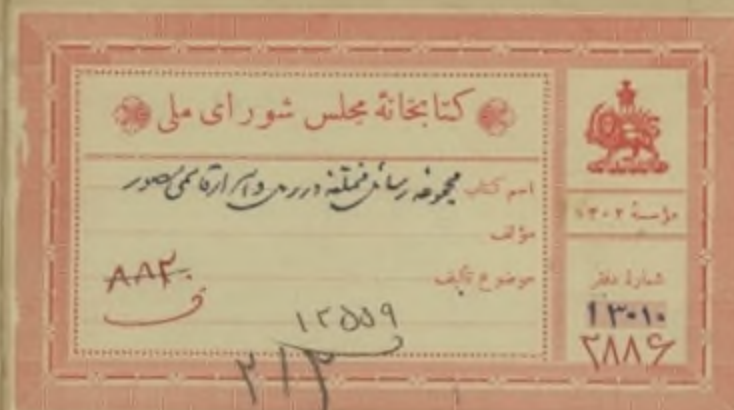 کتابخانهٔ مجلس شورای ملی
اسم کتاب مجموعه رسائل مختلفه در رمل و
مؤلف
موضوع تألیف
۸۸۲
ف
۱۲۵۵۹
۲۱۳
مؤسسهٔ ۱۳۰۲
شمارهٔ دفتر
۱۳۰۱۰
۲۸۸۶